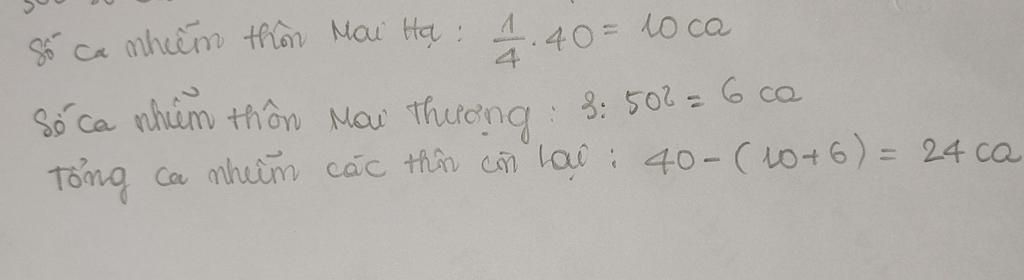 Số ca nhiễm thôn Mai Hạ : 1/4 . 40 = 10 ca
Số ca nhiễm thôn Mai Thượng : 3 : 50% = 6 ca
Tổng ca nhiễm các thôn còn lại : 40 - (10+6) = 24 ca